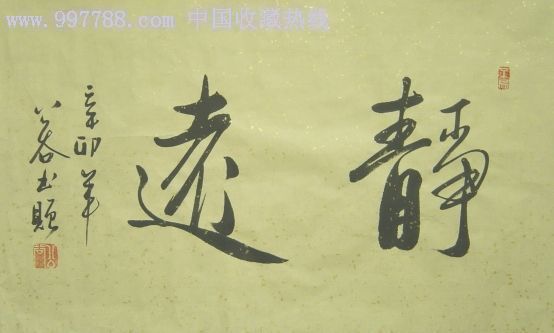 www.997788.com 中国收藏热线
静遠
辛卯年